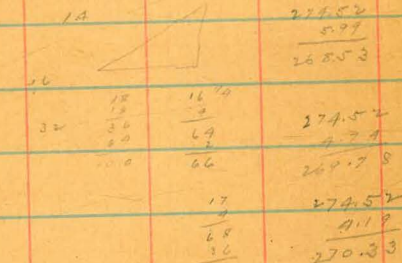 14
274.52
5.99
268.53
16
18
36
64
32
16
4
64
2
66
274.52
4.74
269.78
17
4
68
36
274.52
4.19
270.33